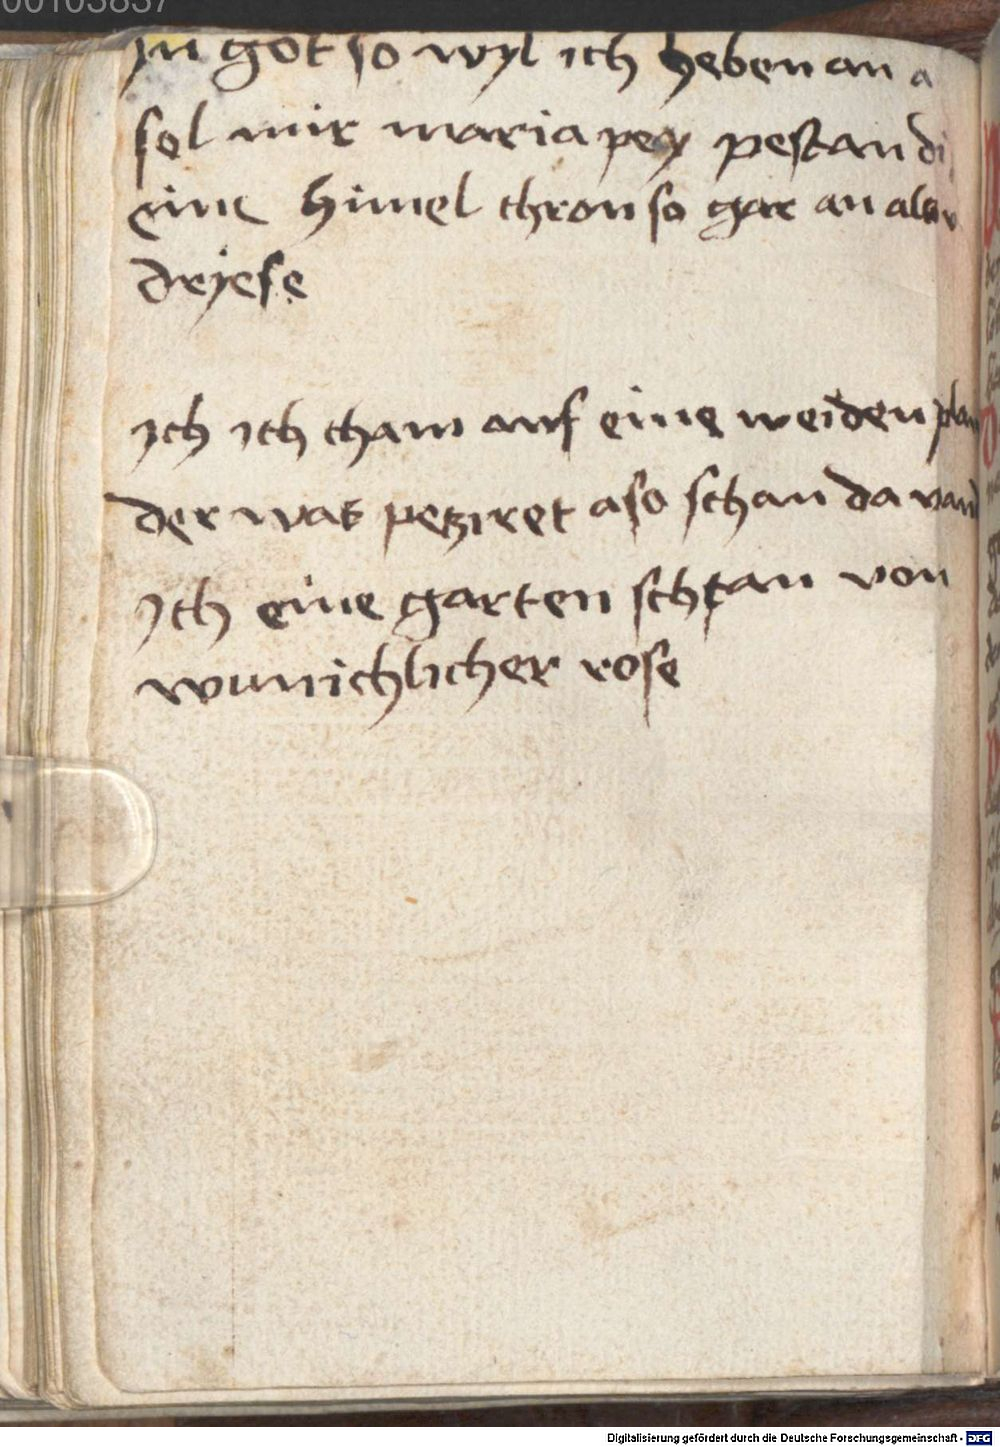 00103837
Jn got so wyl ich heben an a
sol mir maria pey pestan di
eine himel thron so gar an alar
dryese
Jch ich cham auf eine weiden plan
der was pegziret aso schan da vand
Jch eine garten schtan von
wunichlicher rose
Digitalisierung gefördert durch die Deutsche Forschungsgemeinschaft - DFG